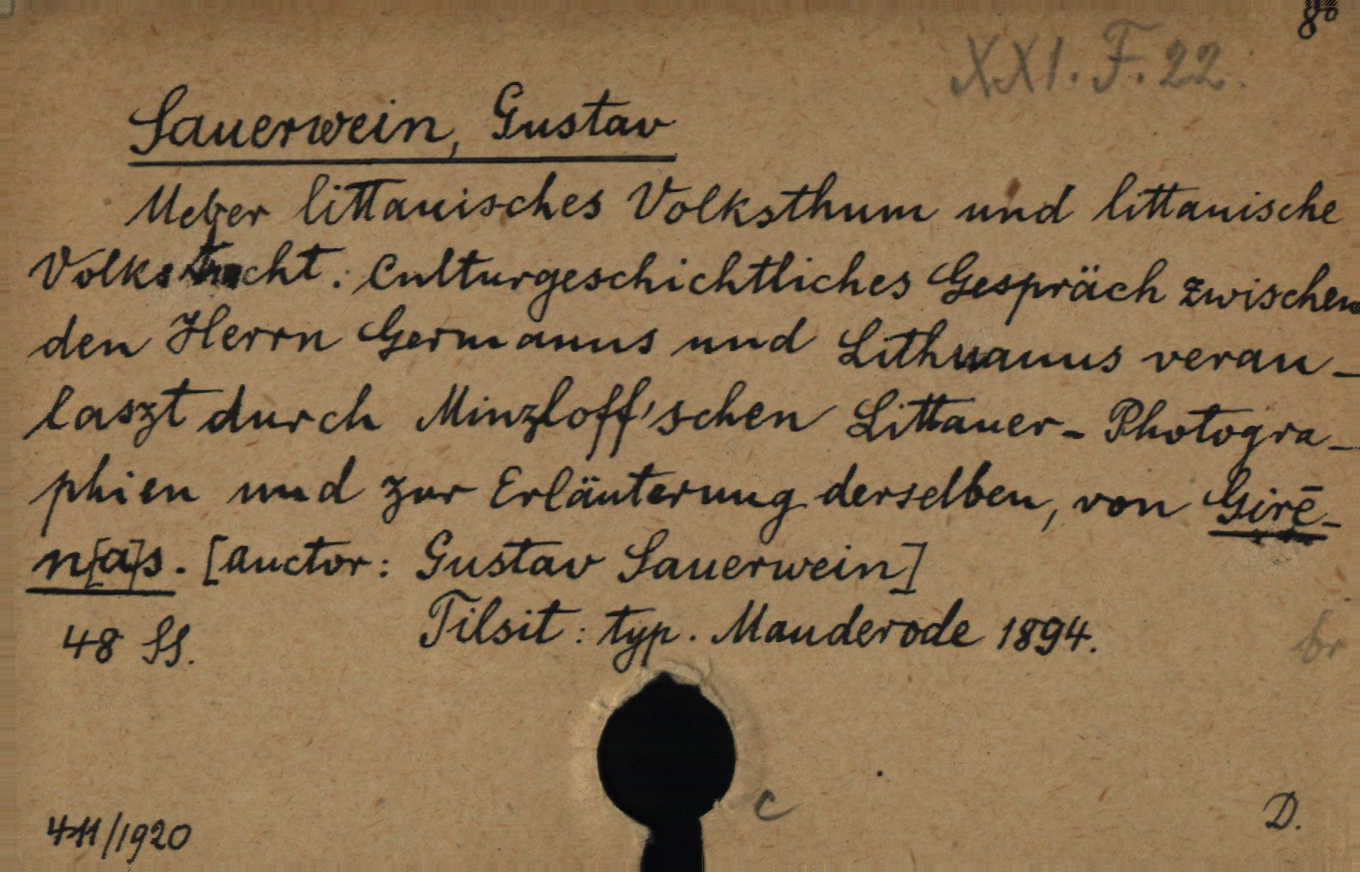 8°
XXI. F. 22.
Sauerwein, Gustav
Ueber littauisches Volksthum und littauische
Volkstracht. Culturgeschichtliches Gespräch zwischen
den Herrn Germanus und Lithuanus veran-
laszt durch Minzloff'schen Littauer-Photogra-
phien und zur Erläuterung derselben, von Girē-
n[a]s. [auctor: Gustav Sauerwein]
48 SS. Tilsit: typ. Mauderode 1894.
br
c
D.
411/1920